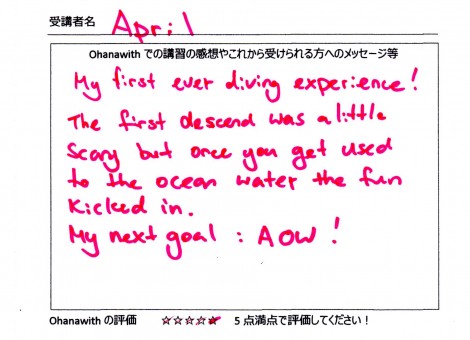 受講者名 April
Ohanawith での講習の感想やこれから受けられる方へのメッセージ等
My first ever diving experience!
The first descend was a little
scary but once you get used
to the ocean water the fun
kicked in.
My next goal : AOW !
Ohanawith の評価 ☆☆☆☆★ 5 点満点で評価してください！